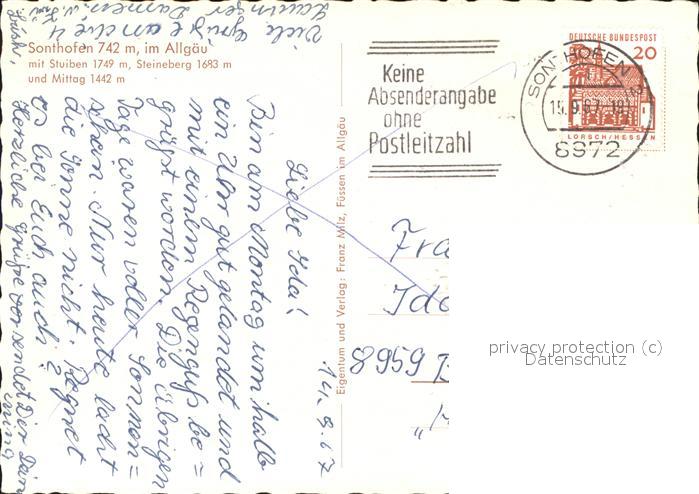 Sonthofen 742 m, im Allgäu
mit Stuiben 1749 m, Steineberg 1683 m
und Mittag 1442 m
14.9.67
Liebe Ida!
Bin am Montag um halb
ein Uhr gut gelandet und
mit einem Regenguß be=
grüßt worden. Die übrigen
Tage waren voller Sonnen=
schein. Nur heute lacht
die Sonne nicht. Regnet
es bei Euch auch?
Herzliche Grüße versendet Dir Deine
Viele Grüße an die 4
Damen
Eigentum und Verlag: Franz Milz, Füssen im Allgäu
Keine
Absenderangabe
ohne
Postleitzahl
SONTHOFEN
8972
DEUTSCHE BUNDESPOST
20
LORSCH/HESSEN
Fra
Ida
8959
privacy protection (c)
Datenschutz